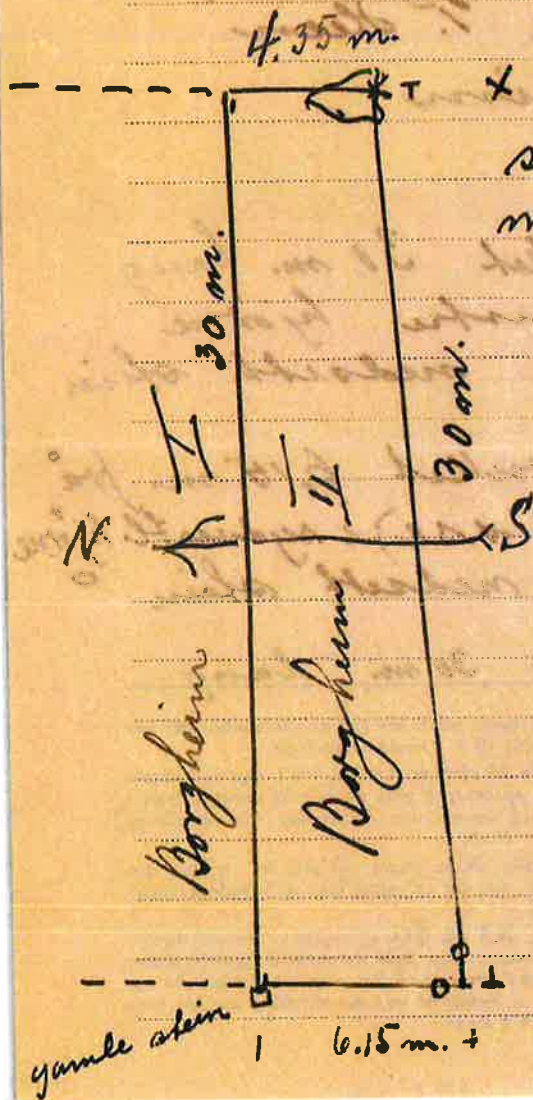 4.35 m.
T X
30 m.
30 m.
N
S
Borgheim I
Borgheim II
gamle stein
1 6.15 m. +